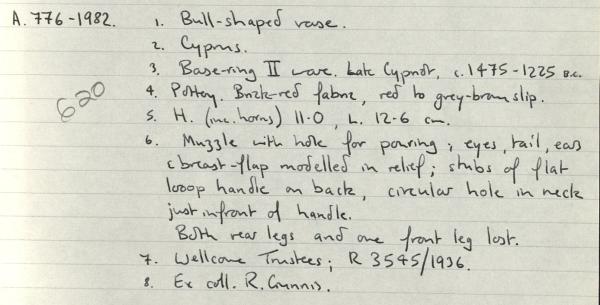 A. 776-1982. 1. Bull-shaped vase.
2. Cyprus.
3. Base-ring II ware. Late Cypriot, c.1475-1225 B.C.
620
4. Pottery. Brick-red fabric, red to grey-brown slip.
5. H. (inc. horns) 11.0, L. 12.6 cm.
6. Muzzle with hole for pouring; eyes, tail, ears
& breast-flap modelled in relief; stubs of flat
looop handle on back, circular hole in neck
just infront of handle.
Both rear legs and one front leg lost.
7. Wellcome Trustees; R 3545/1936.
8. Ex coll. R. Gunnis.